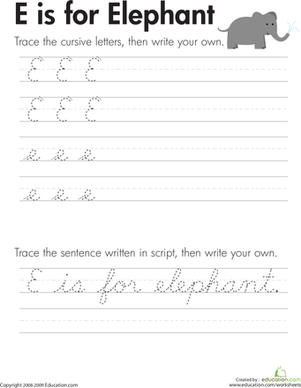 E is for Elephant
Trace the cursive letters, then write your own.
E E E
E E E
e e e
e e e
Trace the sentence written in script, then write your own.
E is for elephant.
Copyright 2008-2009 Education.com
Created by:
education.com
www.education.com/worksheets